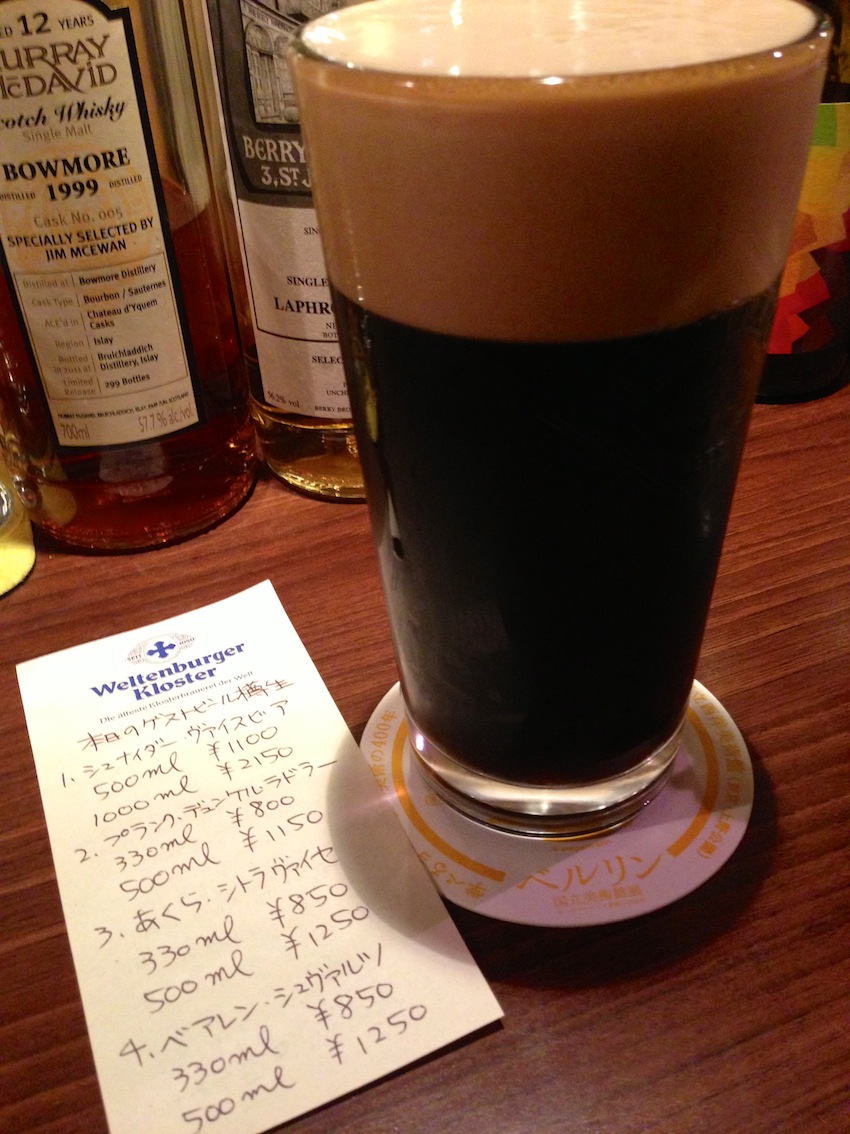 AGED 12 YEARS
MURRAY
McDAVID
Scotch Whisky
Single Malt
BOWMORE
DISTILLED 1999 DISTILLED
Cask No. 005
SPECIALLY SELECTED BY
JIM MCEWAN
Distilled at Bowmore Distillery
Cask Type Bourbon / Sauternes
ACE'd in Chateau d'Yquem
Casks
Region Islay
Bottled Bruichladdich
in 2011 at Distillery, Islay
Limited 299 Bottles
Release
700ml 57.7% alc/vol
BERRY
3, ST. J
SINGLE
LAPHRO
SELEC
56.2% vol
UNCH
BERRY BRO
SEIT 1050
Weltenburger
Kloster
Die älteste Klosterbrauerei der Welt
本日のゲストビール樽生
1. シュナイダー・ヴァイスビア
500ml ¥1100
1000ml ¥2150
2. プランク・デュンケルラドラー
330ml ¥800
500ml ¥1150
3. あくら・シトラヴァイセ
330ml ¥850
500ml ¥1250
4. ベアレン・シュヴァルツ
330ml ¥850
500ml ¥1250
美術の400年
ベルリン
国立美術館展